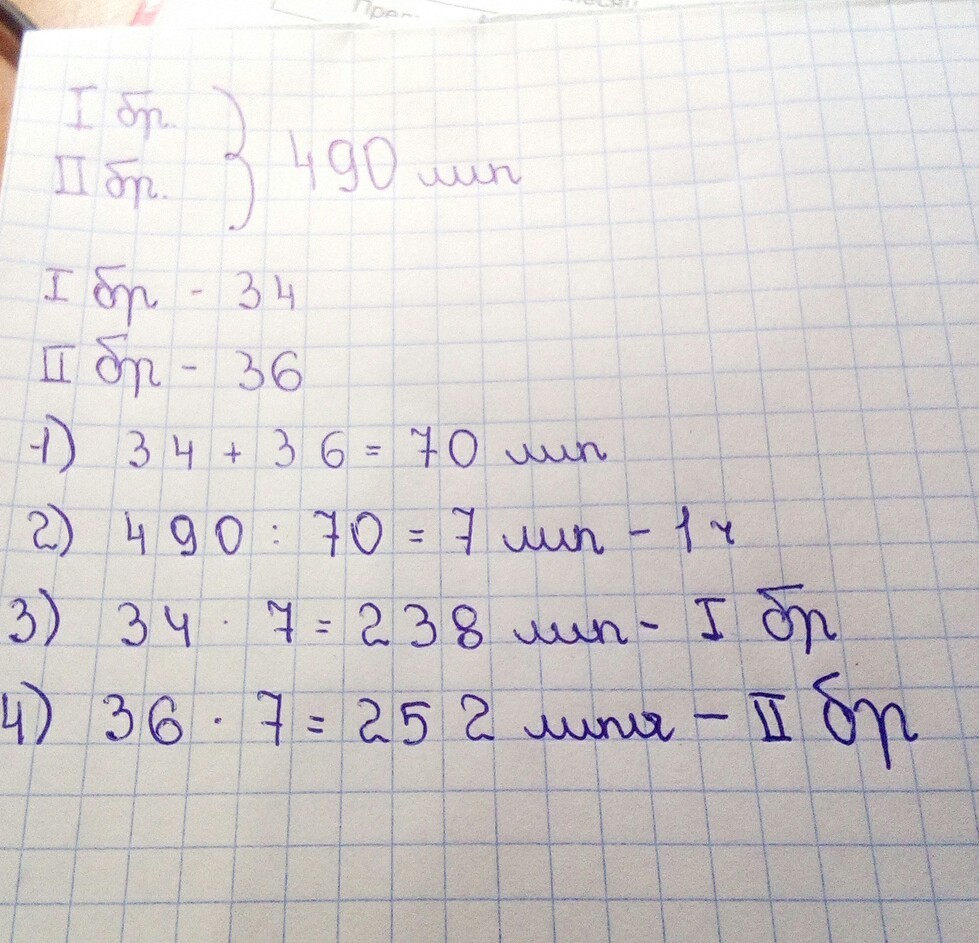 I бр.
II бр.
} 490 лип
I бр - 34
II бр - 36
1) 34 + 36 = 70 лип
2) 490 : 70 = 7 лип - 1 ч
3) 34 · 7 = 238 лип - I бр
4) 36 · 7 = 252 липы - II бр